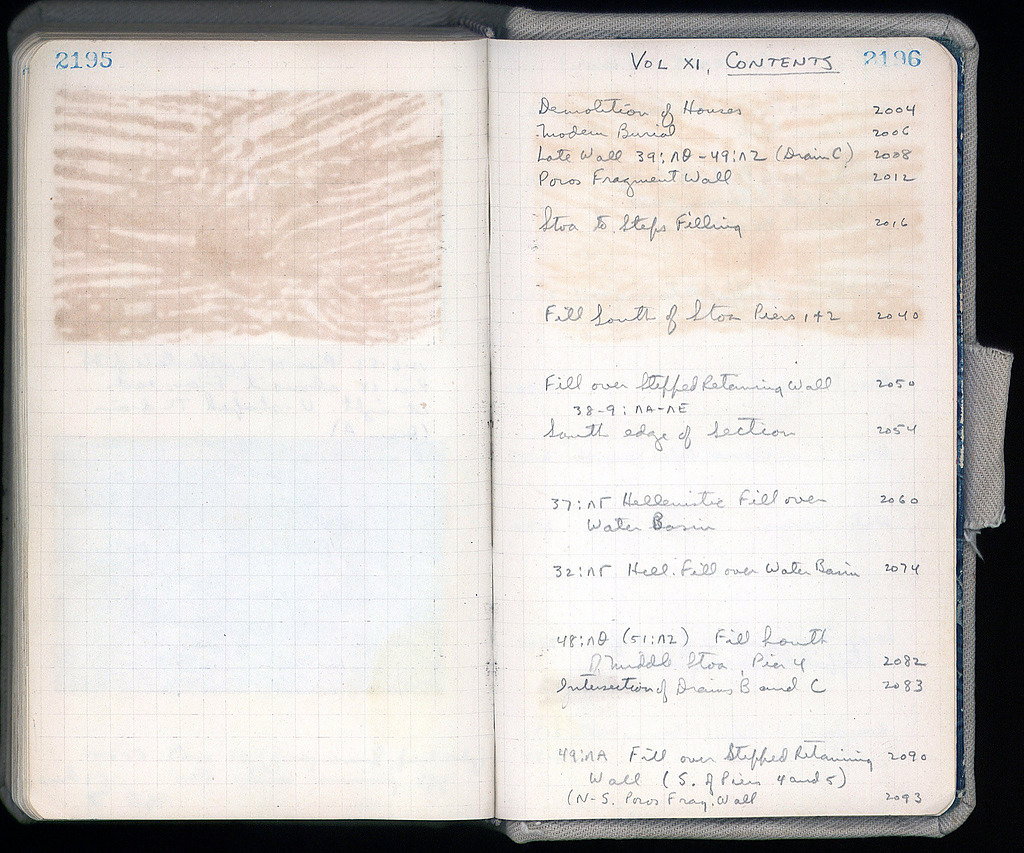 2195
VOL XI, CONTENTS 2196
Demolition of Houses 2004
Modern Burial 2006
Late Wall 39:ΛΘ-49:ΛΖ (Drain C) 2008
Poros Fragment Wall 2012
Stoa to Steps Filling 2016
Fill South of Stoa Piers 1+2 2040
Fill over Stepped Retaining Wall 2050
38-9:ΛΑ-ΛΕ
South edge of Section 2054
37:ΛΓ Hellenistic Fill over 2060
Water Basin
32:ΛΓ Hell. Fill over Water Basin 2074
48:ΛΘ (51:ΛΖ) Fill South
of Middle Stoa, Pier 4 2082
Intersection of Drains B and C 2083
49:ΛΑ Fill over Stepped Retaining 2090
Wall (S. of Piers 4 and 5)
(N-S. Poros Frag. Wall 2093